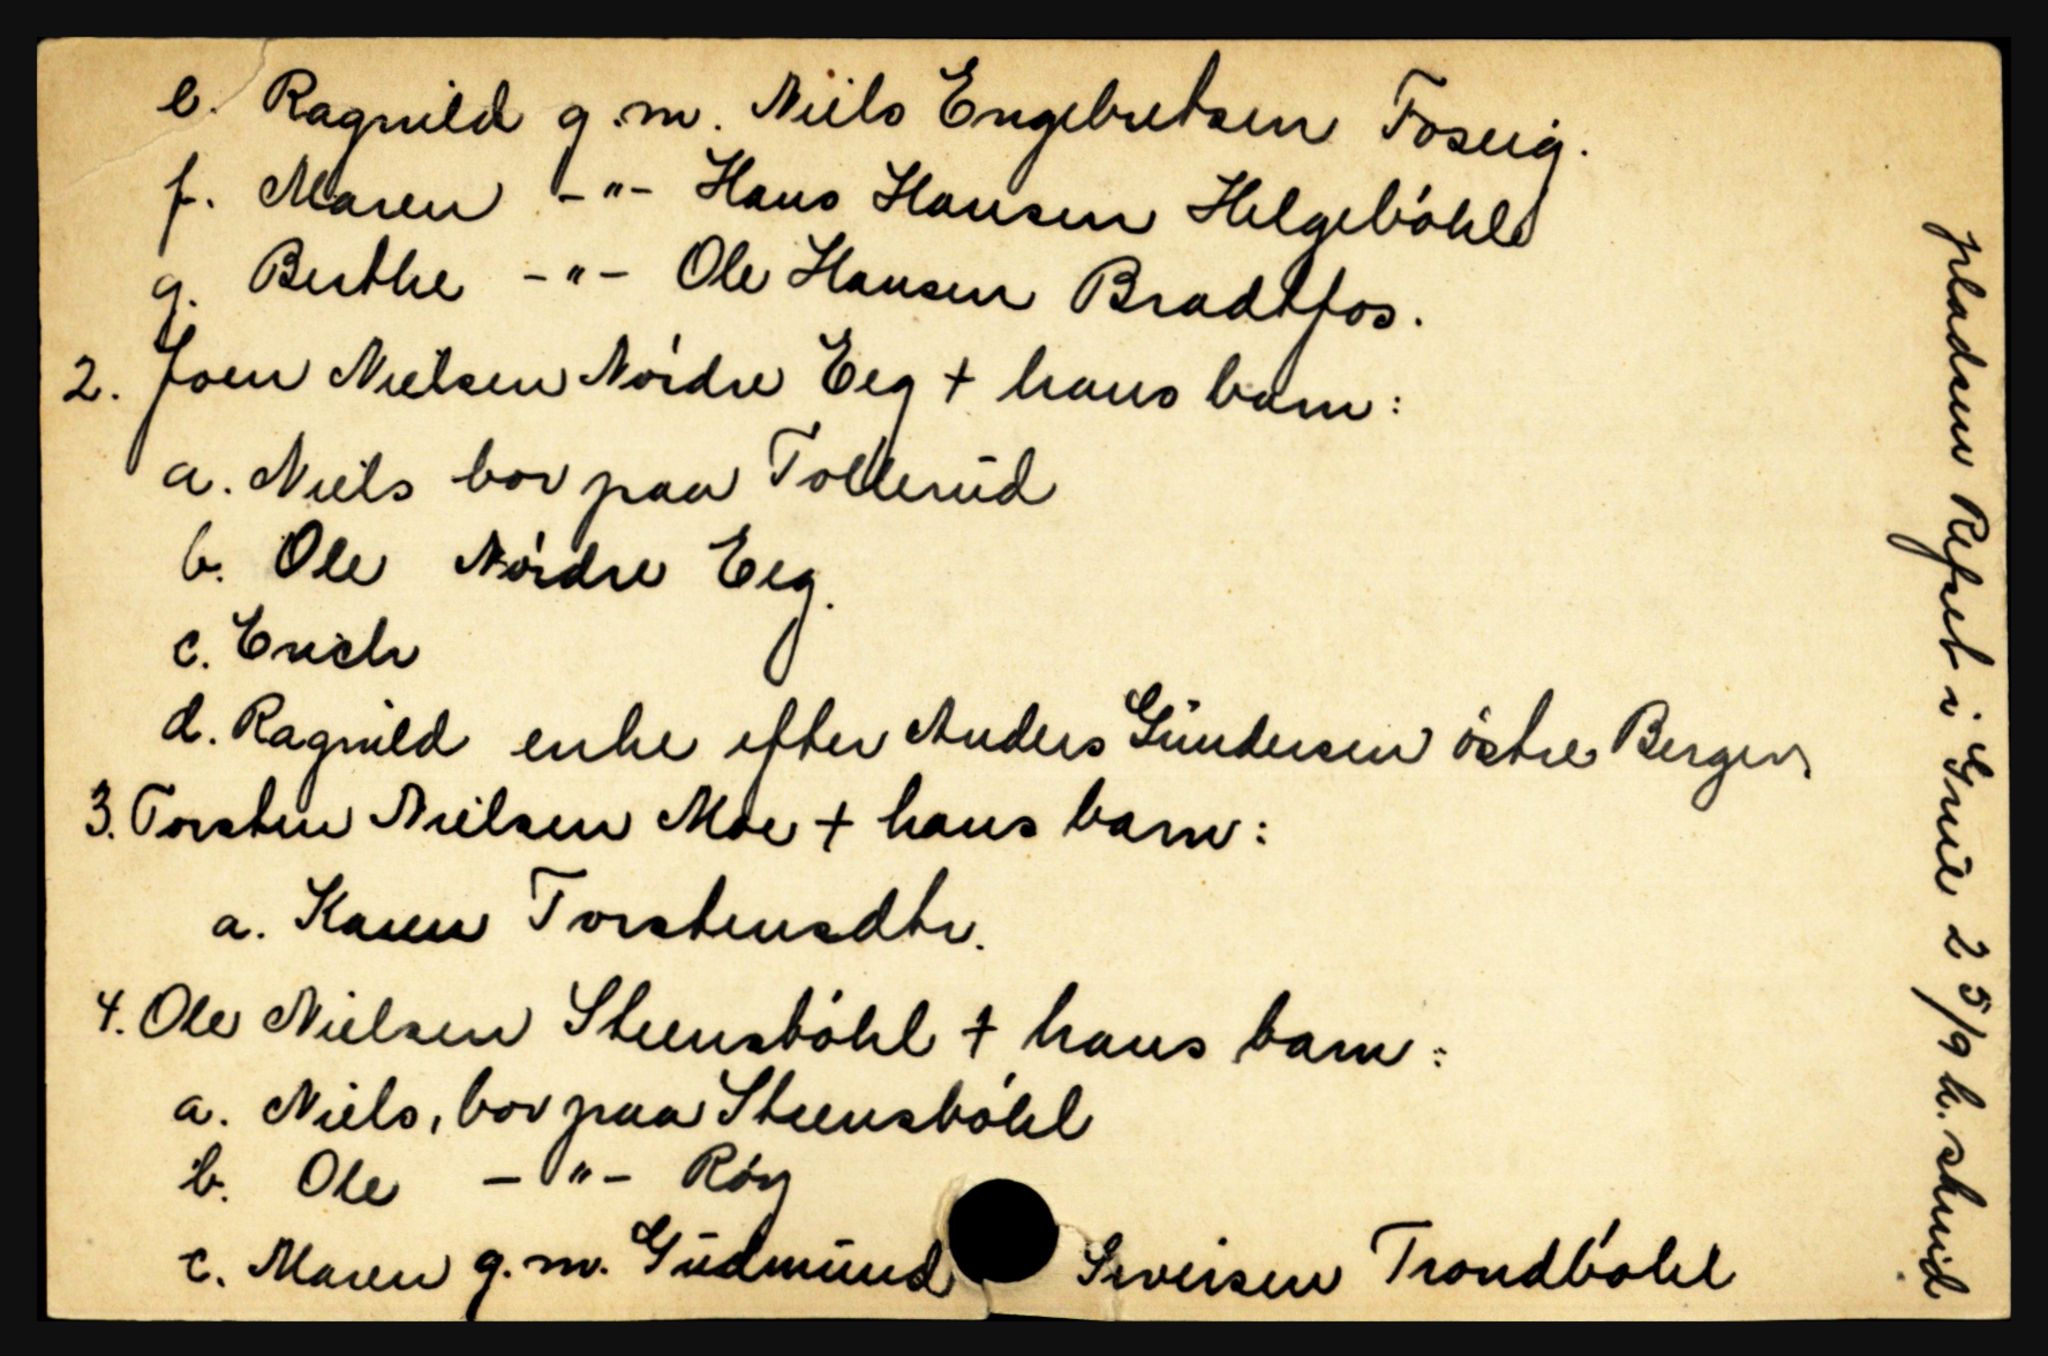 e. Ragnild g.m. Niels Engebretsen Foseig.
f. Maren -"- Hans Hansen Helgeböhle
g. Berthe -"- Ole Hansen Bradtfos.
2. Joen Nielsen Nordre Eeg + hans barn:
a. Niels bor paa Tollerud
b. Ole Nordre Eeg.
c. Erich
d. Ragnild enke efter Anders Gundersen östre Bergen
3. Torsten Nielsen Moe + hans barn:
a. Karen Torstensdtr.
4. Ole Nielsen Steensböhl + hans barn:
a. Niels, bor paa Steensböhl
b. Ole -"- Röy
c. Maren g.m. Gudmund Siversen Trondböhl
pladsen Refset i Grue 25/9 h. skrid